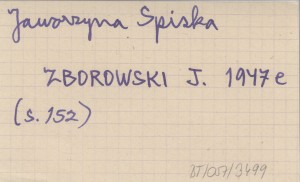 Jaworzyna Spiska
ZBOROWSKI J. 1947 e
(s. 152)
BT/057/3499